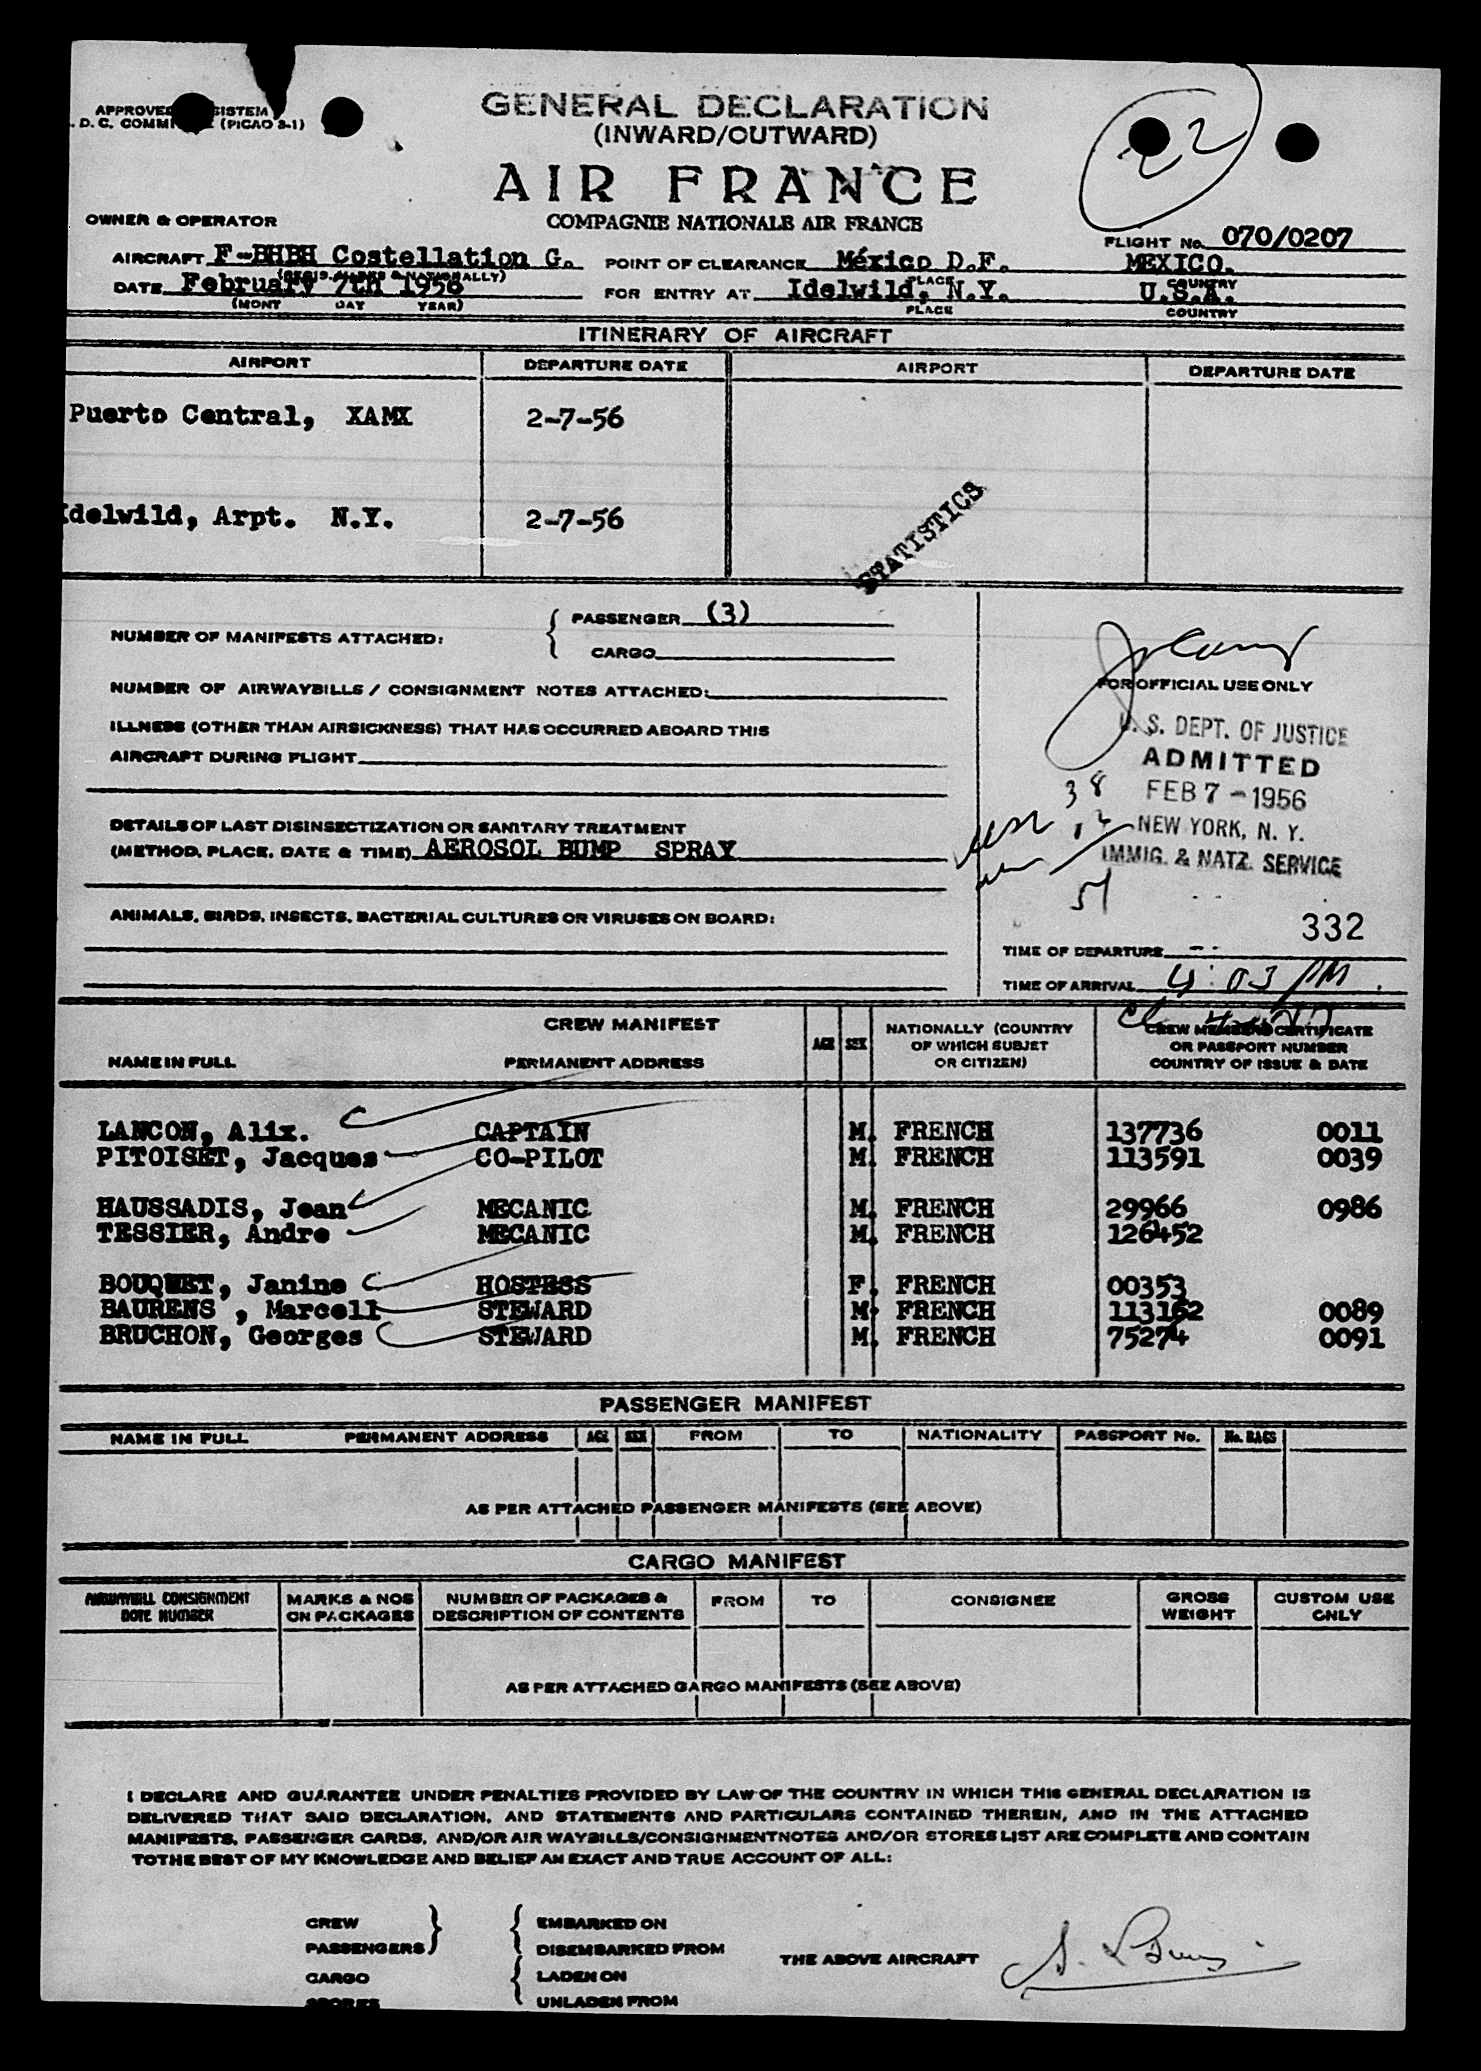 GENERAL DECLARATION
(INWARD/OUTWARD)
AIR FRANCE
COMPAGNIE NATIONALE AIR FRANCE
22
(PICAO 2-1)
D. C.
OWNER & OPERATOR
FLIGHT No. 070/0207
AIRCRAFT F-BHBH Costellation G. POINT OF CLEARANCE México D.F. MEXICO.
PLACE COUNTRY
DATE February 7th 1956 FOR ENTRY AT Idelwild, N.Y. U.S.A.
(MONT DAY YEAR) PLACE COUNTRY
ITINERARY OF AIRCRAFT
AIRPORT DEPARTURE DATE AIRPORT DEPARTURE DATE
Puerto Central, XAMX 2-7-56
Idelwild, Arpt. N.Y. 2-7-56
STATISTICS
NUMBER OF MANIFESTS ATTACHED: PASSENGER (3)
CARGO
NUMBER OF AIRWAYBILLS / CONSIGNMENT NOTES ATTACHED:
ILLNESS (OTHER THAN AIRSICKNESS) THAT HAS OCCURRED ABOARD THIS
AIRCRAFT DURING FLIGHT
DETAILS OF LAST DISINSECTIZATION OR SANITARY TREATMENT
(METHOD, PLACE, DATE & TIME) AEROSOL BUMP SPRAY
ANIMALS, BIRDS, INSECTS, BACTERIAL CULTURES OR VIRUSES ON BOARD:
FOR OFFICIAL USE ONLY
U. S. DEPT. OF JUSTICE
ADMITTED
38 FEB 7 - 1956
NEW YORK, N. Y.
IMMIG. & NATZ. SERVICE
51
332
TIME OF DEPARTURE
TIME OF ARRIVAL 4:03 PM.
CREW MANIFEST
NAME IN FULL PERMANENT ADDRESS AGE SEX NATIONALLY (COUNTRY OF WHICH SUBJET OR CITIZEN) CREW MEMBERS CERTIFICATE OR PASSPORT NUMBER COUNTRY OF ISSUE & DATE
LANCON, Alix. CAPTAIN M. FRENCH 137736 0011
PITOISET, Jacques CO-PILOT M. FRENCH 113591 0039
HAUSSADIS, Jean MECANIC M. FRENCH 29966 0986
TESSIER, Andre MECANIC M. FRENCH 126452
BOUQUET, Janine HOSTESS F. FRENCH 00353
BAURENS , Marcell STEWARD M. FRENCH 113162 0089
BRUCHON, Georges STEWARD M. FRENCH 75274 0091
PASSENGER MANIFEST
NAME IN FULL PERMANENT ADDRESS AGE SEX FROM TO NATIONALITY PASSPORT No. No. BAGS
AS PER ATTACHED PASSENGER MANIFESTS (SEE ABOVE)
CARGO MANIFEST
AIRWAYBILL CONSIGNMENT NOTE NUMBER MARKS & NOS ON PACKAGES NUMBER OF PACKAGES & DESCRIPTION OF CONTENTS FROM TO CONSIGNEE GROSS WEIGHT CUSTOM USE ONLY
AS PER ATTACHED CARGO MANIFESTS (SEE ABOVE)
I DECLARE AND GUARANTEE UNDER PENALTIES PROVIDED BY LAW OF THE COUNTRY IN WHICH THIS GENERAL DECLARATION IS
DELIVERED THAT SAID DECLARATION, AND STATEMENTS AND PARTICULARS CONTAINED THEREIN, AND IN THE ATTACHED
MANIFESTS, PASSENGER CARDS, AND/OR AIR WAYBILLS/CONSIGNMENTNOTES AND/OR STORES LIST ARE COMPLETE AND CONTAIN
TOTHE BEST OF MY KNOWLEDGE AND BELIEF AN EXACT AND TRUE ACCOUNT OF ALL:
CREW EMBARKED ON
PASSENGERS DISEMBARKED FROM
THE ABOVE AIRCRAFT
CARGO LADEN ON
STORES UNLADEN FROM